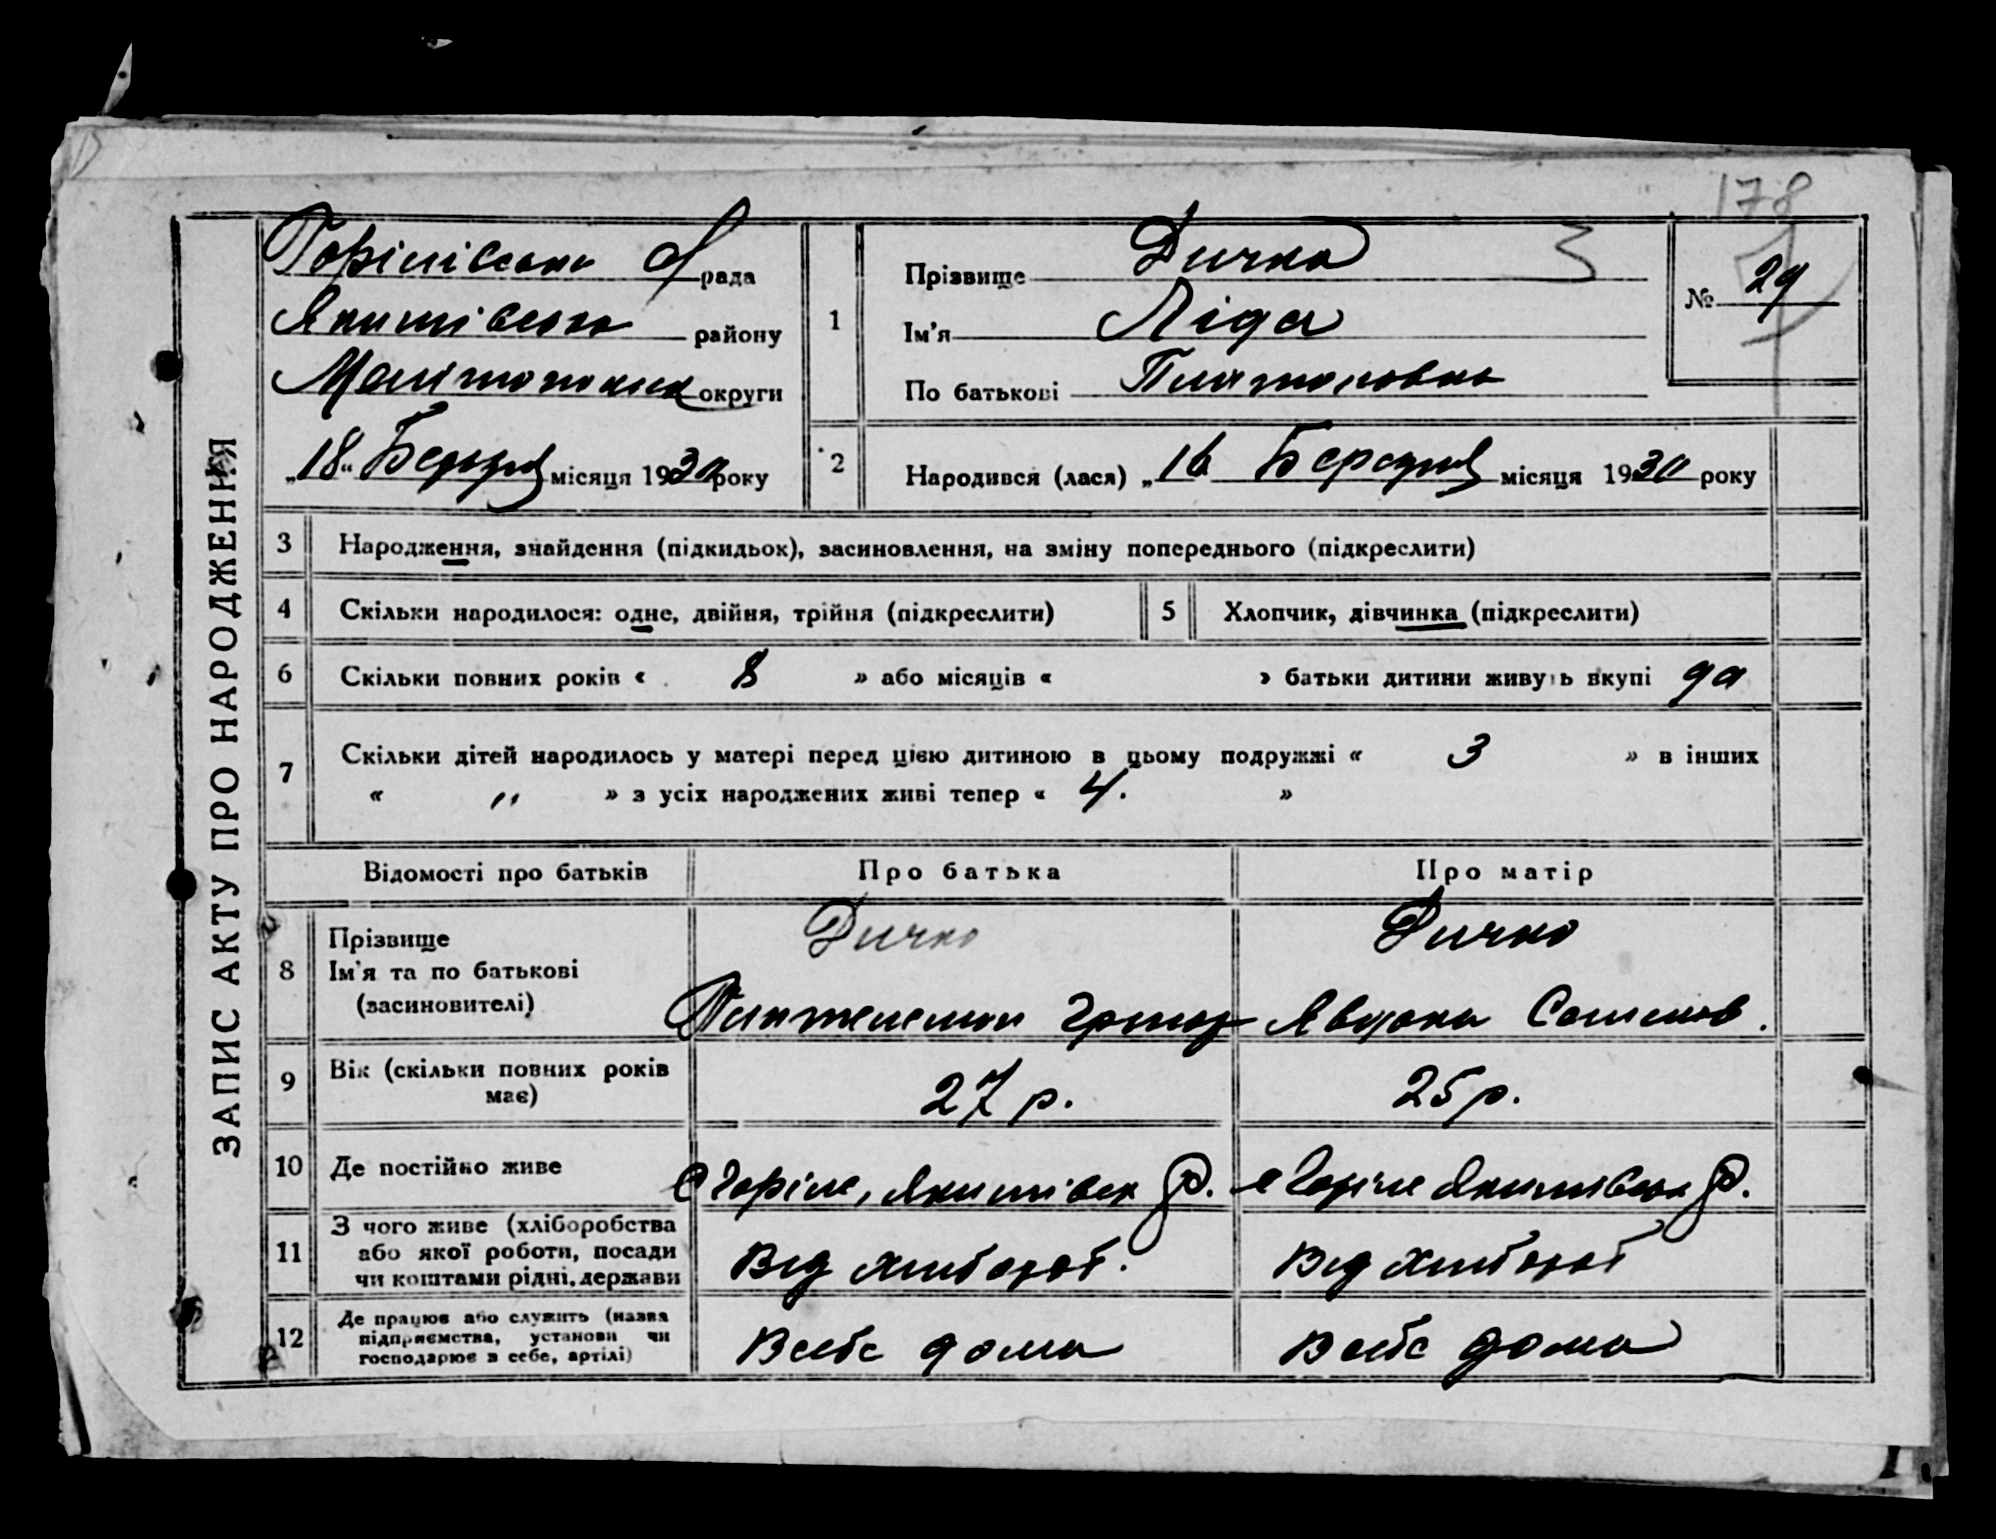 178
ЗАПИС АКТУ ПРО НАРОДЖЕННЯ
Горілівська С рада
Якимівского району
Мелітопильск округи
„18“ Березня місяця 1930 року
1
Прізвище Дичко
Ім'я Ліда
По батькові
№ 29
2
Народився (лася) „16 Березня місяця 1930 року
3 Народження, знайдення (підкидьок), засиновлення, на зміну попереднього (підкреслити)
4 Скільки народилося: одне, двійня, трійня (підкреслити) 5 Хлопчик, дівчинка (підкреслити)
6 Скільки повних років « 8 » або місяців « » батьки дитини живуть вкупі да
7 Скільки дітей народилось у матері перед цією дитиною в цьому подружжі « 3 » в інших
« „ » з усіх народжених живі тепер « 4. »
Відомості про батьків Про батька Про матір
8 Прізвище
Ім'я та по батькові
(засиновителі)
Дичко Дичко
Григор Явдоха
9 Вік (скільки повних років
має)
27 р. 25 р.
10 Де постійно живе
с Горіле, Якимівск р. с Горіле Якимівськ р.
11 З чого живе (хліборобства
або якої роботи, посади
чи коштами рідні, держави
Від хлібороб. Від хлібороб
12 Де працює або служить (назва
підприємства, установи чи
господарює в себе, артілі)
В себе дома В себе дома